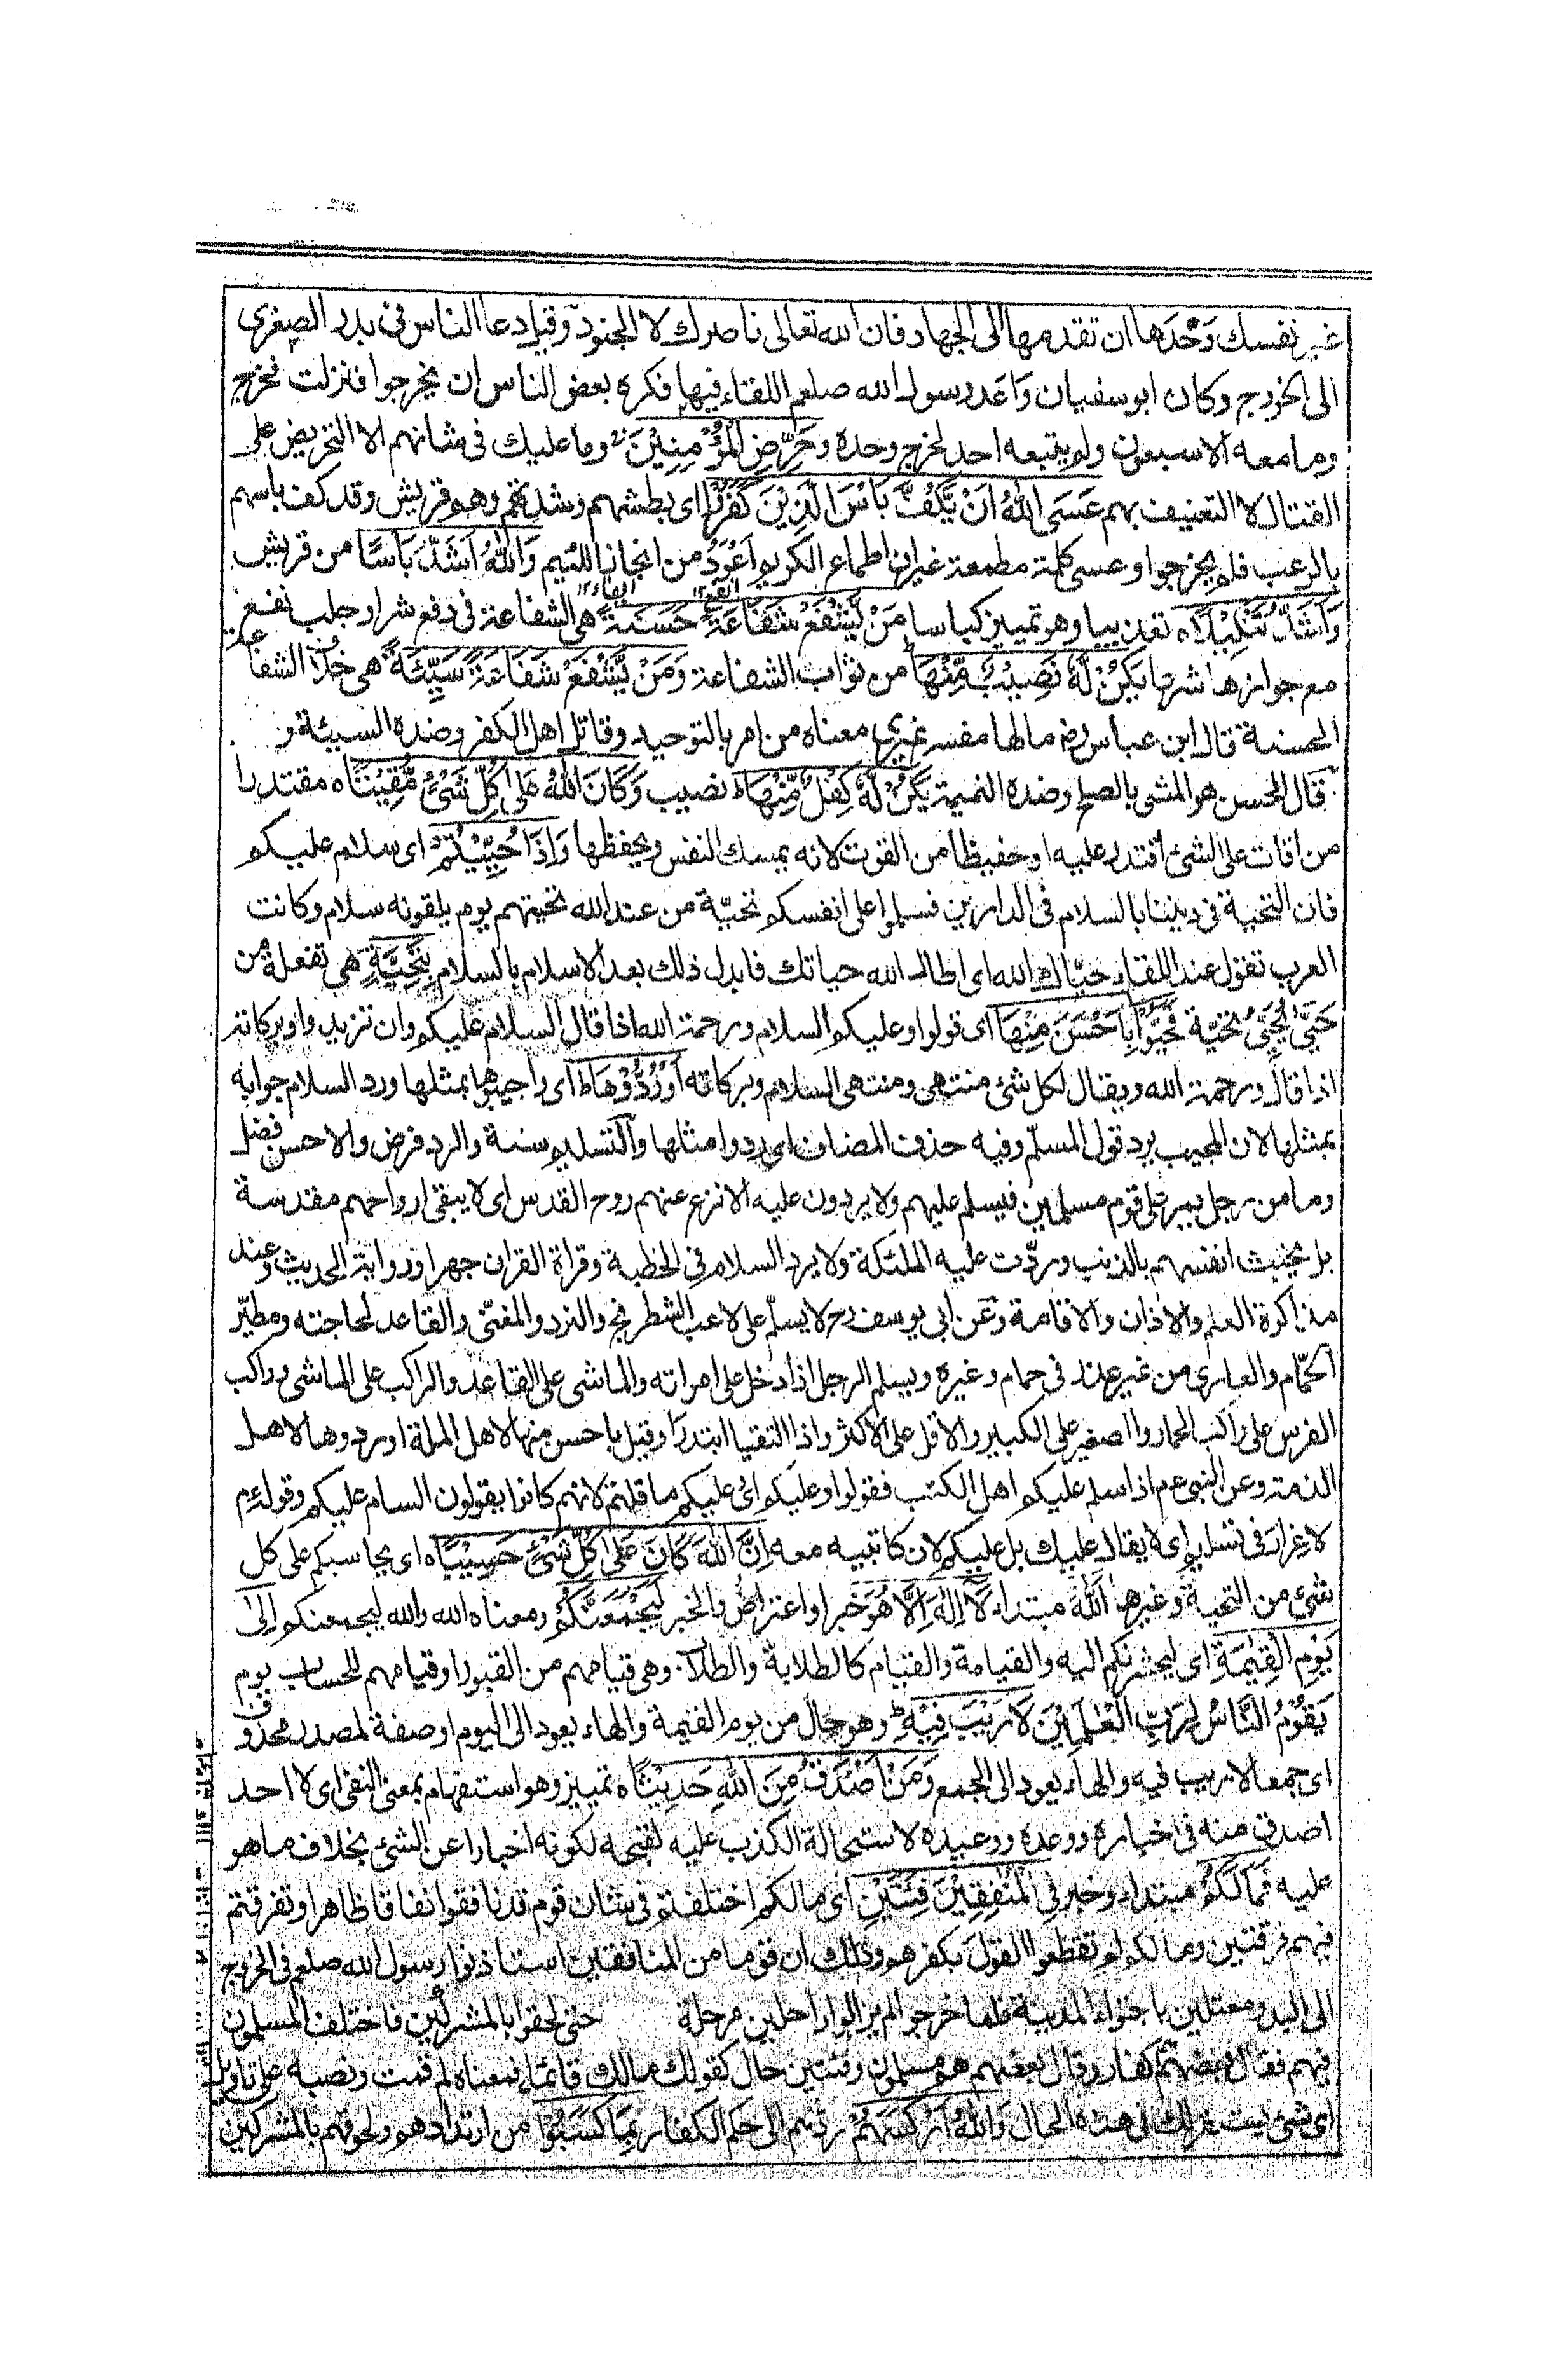 غير نفسك وَحْدَها ان تقدمها الى الجهاد فان الله تعالى ناصرك لا الجنود وقيل دعا الناس فى بدر الصغرى
الى الخروج وكان ابو سفيان وَاعَد رسول الله صلعم اللقاء فيها فكره بعض الناس ان يخرجوا فنزلت فخرج
وما معه الا سبعون ولو يتبعه احد لخرج وحده وَحَرِّضِ الْمُؤْمِنِيْنَ وما عليك فى شانهم الا التحريض على
القتال لا التعنيف بهم عَسَى اللهُ اَنْ يَّكُفَّ بَاْسَ الَّذِيْنَ كَفَرُوْا اى بطشهم وشدتهم وهو قريش وقد كف باسهم
بالرعب فلم يخرجوا وعسى كلمة مطمعة غير ان اطماع الكريم اَعْوَدُ من انجاز اللئيم وَاللهُ اَشَدُّ بَاْسًا من قريش
وَاَشَدُّ تَنْكِيْلًا ه تعذيبا وهو تمييز كباسا مَنْ يَّشْفَعْ شَفَاعَةً حَسَنَةً هى الشفاعة فى دفع شر او جلب نفع
مع جوازها شرعا يَكُنْ لَّهٗ نَصِيْبٌ مِّنْهَا من ثواب الشفاعة وَمَنْ يَّشْفَعْ شَفَاعَةً سَيِّئَةً هى خلاف الشفاعة
الحسنة قال ابن عباس رضـ ما لها مفسر غيرى معناه من امر بالتوحيد وقاتل اهل الكفر وضده السيئة و
قال الحسن هو المشى بالصلح وضده النميمة يَكُنْ لَّهٗ كِفْلٌ مِّنْهَا ه نصيب وَكَانَ اللهُ عَلٰى كُلِّ شَىْءٍ مُّقِيْتًا ه مقتدرا
من اقات على الشئ اقتدر عليه او حفيظا من القوت لانه يمسك النفس ويحفظها وَاِذَا حُيِّيْتُمْ اى سلام عليكم
فان التحية فى ديننا بالسلام فى الدارين فسلموا على انفسكم تحيّة من عند الله تحيتهم يوم يلقونه سلام وكانت
العرب تقول عند اللقاء حيّاك الله اى اطال الله حياتك فابدل ذلك بعد الاسلام بالسلام بِتَحِيَّةٍ هى تفعلة من
حَيّٰى يُحَيِّىْ تحيّة فَحَيُّوْا بِاَحْسَنَ مِنْهَا اى قولوا وعليكم السلام ورحمة الله اذا قال السلام عليكم وان تزيدوا وبركاته
اذا قال ورحمة الله ويقال لكل شئ منتهى ومنتهى السلام وبركاته اَوْ رُدُّوْهَا ط اى اجيبوها بمثلها ورد السلام جوابه
بمثلها لان المجيب يرد قول المسلّم وفيه حذف المضاف اى ردوا مثلها والتسليم سنة والرد فرض والاحسن فضل
وما من رجل يمر على قوم مسلمين فيسلم عليهم ولا يردون عليه الا نزع عنهم روح القدس اى لا يبقى ارواحهم مقدسة
بل يخبث انفسهم بالذنب وردّت عليه الملئكة ولا يرد السلام فى الخطبة وقراة القران جهرا ورواية الحديث وعند
مذاكرة العلم والاذان والاقامة وعن ابى يوسف رح لا يسلم على لاعب الشطرنج والنرد والمغنّى والقاعد لحاجته ومطيّر
الحمّام والعارى من غير عذر فى حمام وغيره ويسلم الرجل اذا دخل على امراته والماشى على القاعد والراكب على الماشى وراكب
الفرس على راكب الحمار والصغير على الكبير والاقل على الاكثر واذا التقيا ابتدرا وقيل باحسن منها لاهل الملة او ردوها لاهل
الذمة وعن النبى عم اذا سلم عليكم اهل الكتب فقولوا وعليكم اى عليكم ما قلتم لانهم كانوا يقولون السام عليكم وقوله عم
لا غرار فى تسليم اى لا يقال عليك بل عليكم لان كاتبيه معه اِنَّ اللهَ كَانَ عَلٰى كُلِّ شَىْءٍ حَسِيْبًا ه اى يحاسبكم على كل
شئ من التحية وغيرها اَللهُ مبتداء لَآ اِلٰهَ اِلَّا هُوَ خبر او اعتراض والخبر لَيَجْمَعَنَّكُمْ ومعناه الله والله ليجمعنكم اِلٰى
يَوْمِ الْقِيٰمَةِ اى ليحشرنكم اليه والقيامة والقيام كالطلابة والطلاب وهى قيامهم من القبور او قيامهم للحساب يوم
يَقُوْمُ النَّاسُ لِرَبِّ الْعٰلَمِيْنَ لَا رَيْبَ فِيْهِ وهو حال من يوم القيمة والهاء يعود الى اليوم او صفة لمصدر محذوف
اى جمعا لا ريب فيه والهاء يعود الى الجمع وَمَنْ اَصْدَقُ مِنَ اللهِ حَدِيْثًا ه تمييز وهو استفهام بمعنى النفى اى لا احد
اصدق منه فى اخباره ووعده ووعيده لاستحالة الكذب عليه لقبحه لكونه اخبارا عن الشئ بخلاف ما هو
عليه فَمَا لَكُمْ مبتداء وخبر فِى الْمُنٰفِقِيْنَ فِئَتَيْنِ اى ما لكم اختلفتم فى شان قوم قد نافقوا نفاقا ظاهرا وتفرقتم
فيهم فرقتين وما لكم لم تقطعوا القول بكفرهم وذلك ان قوما من المنافقين استاذنوا رسول الله صلعم فى الخروج
الى البدو معتلين باجتواء المدينة فلما خرجوا لم يزالوا راحلين مرحلة حتى لحقوا بالمشركين فاختلف المسلمون
فيهم فقال بعضهم كفار وقال بعضهم هم مسلمون وفئتين حال كقولك مالك قائما فمعناه لم قمت ونصبه على تاويل
اى شئ يستقر لك فى هذه الحال وَاللهُ اَرْكَسَهُمْ ردهم الى حكم الكفار بِمَا كَسَبُوْا من ارتدادهم ولحوقهم بالمشركين